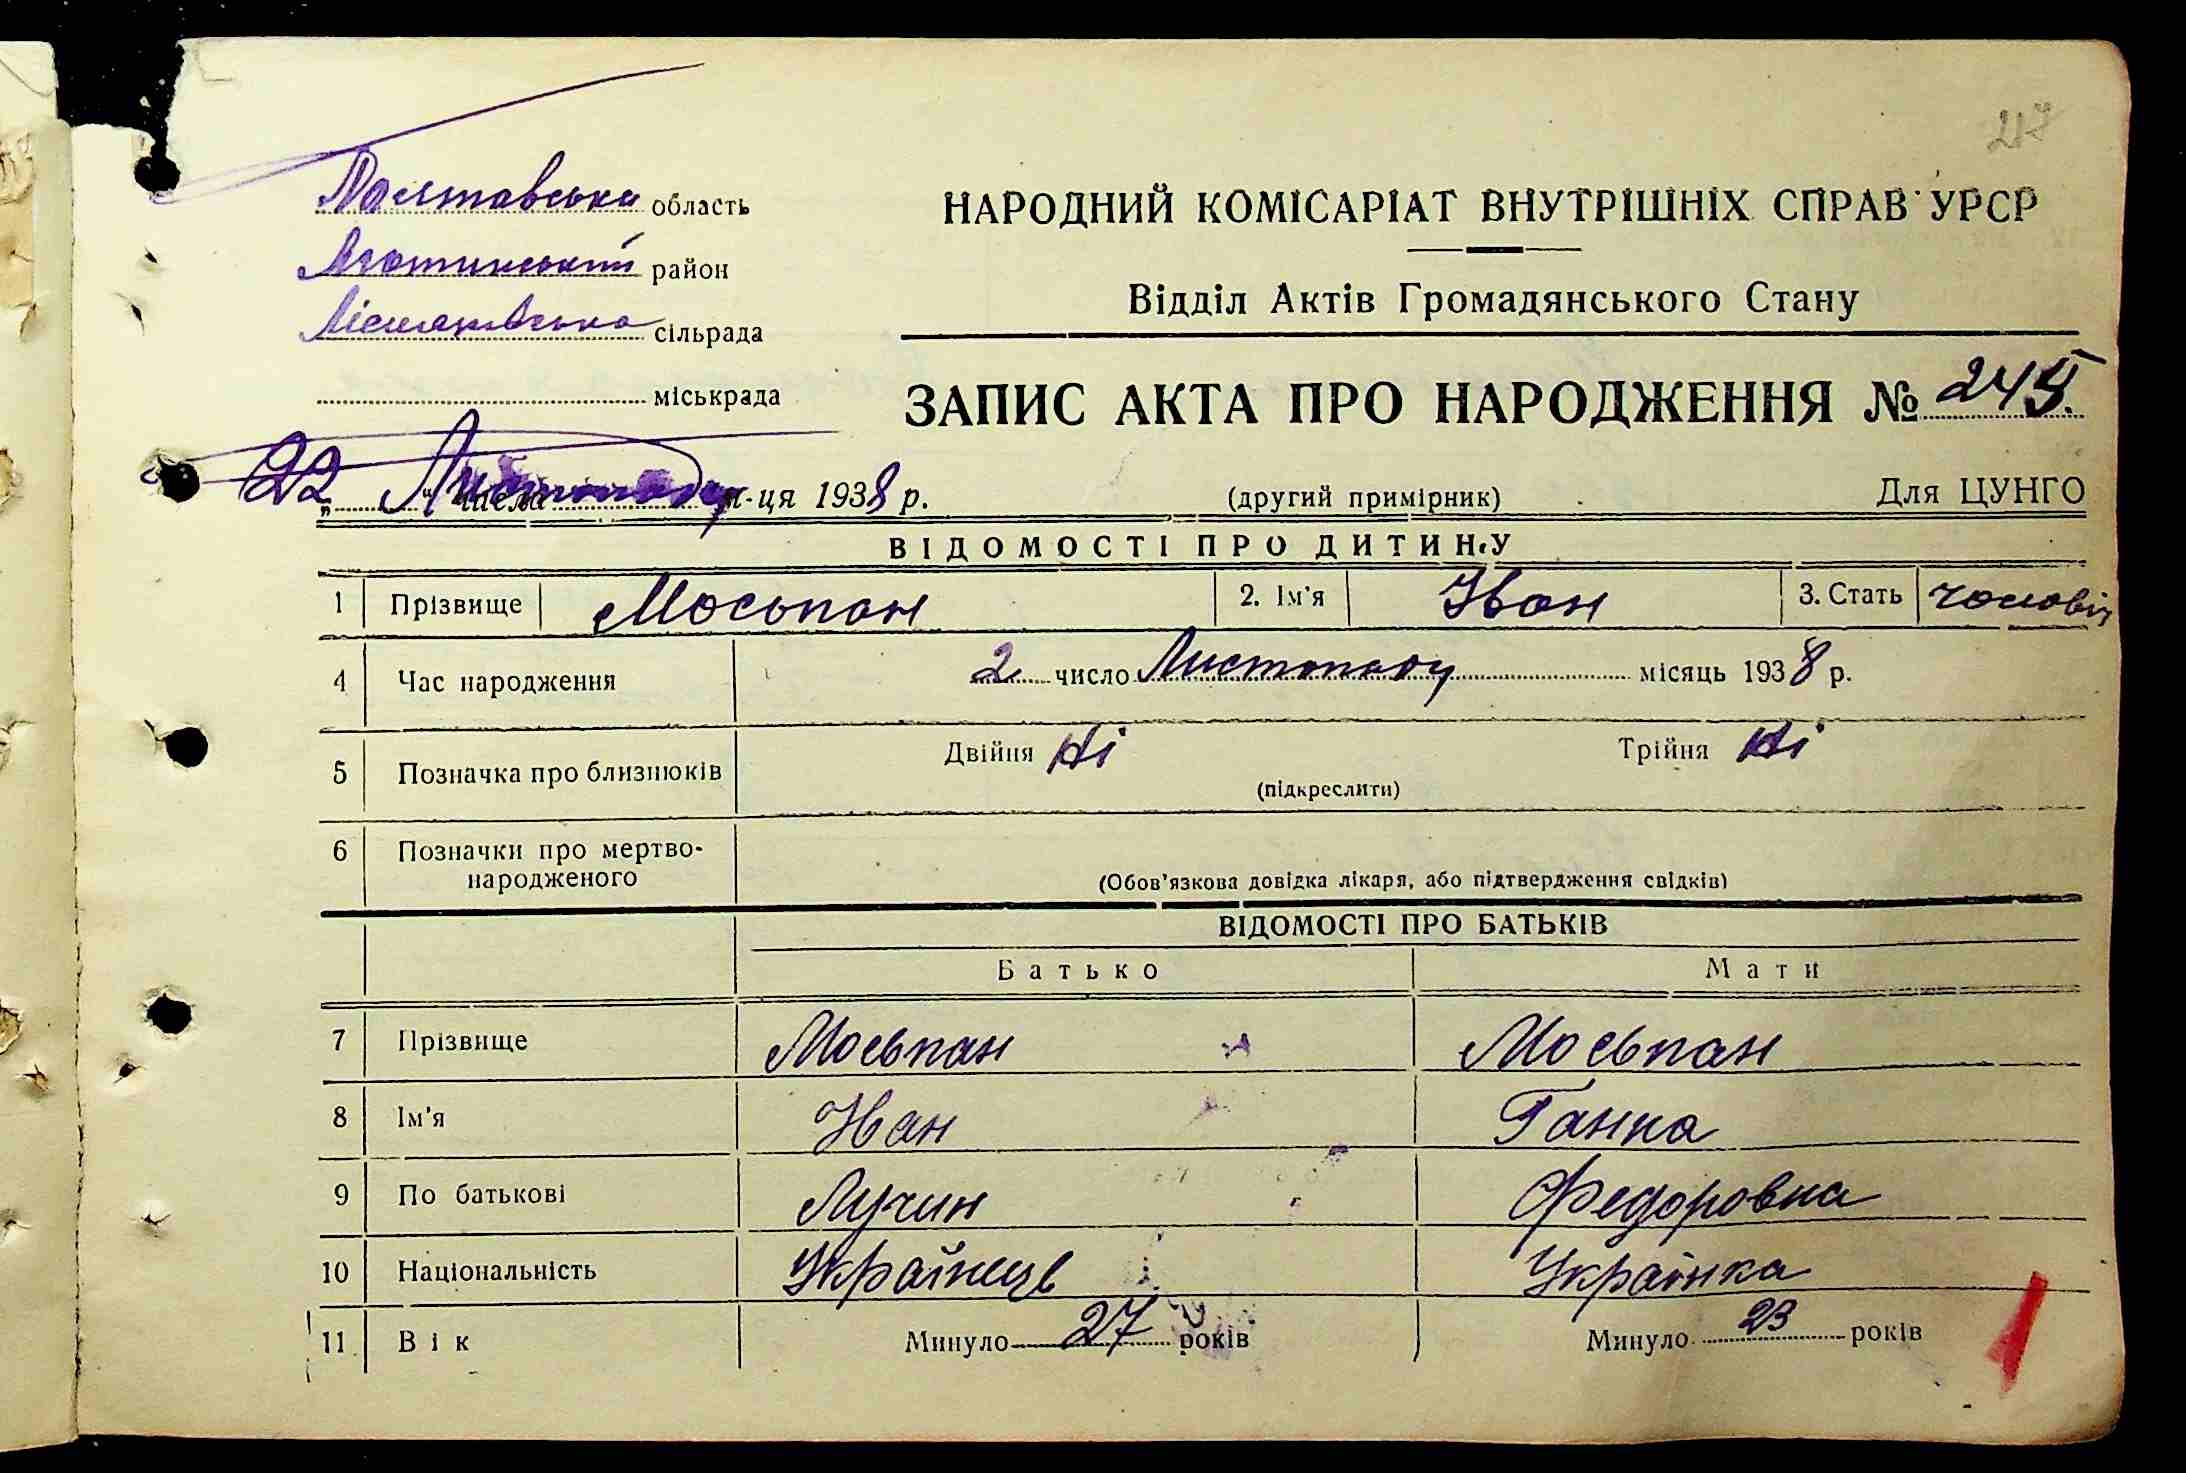 217
Полтавська область
Яготинський район
Лісняківська сільрада
міськрада
НАРОДНИЙ КОМІСАРІАТ ВНУТРІШНІХ СПРАВ УРСР
Відділ Актів Громадянського Стану
ЗАПИС АКТА ПРО НАРОДЖЕННЯ № 245.
„22“ числа Листопаду м-ця 1938 р.
(другий примірник)
Для ЦУНГО
ВІДОМОСТІ ПРО ДИТИНУ
1 Прізвище Мосьпан 2. Ім'я Іван 3. Стать чоловіч
4 Час народження 2 число Листопаду місяць 1938 р.
5 Позначка про близнюків Двійня Ні Трійня Ні
(підкреслити)
6 Позначки про мертво-
народженого
(Обов'язкова довідка лікаря, або підтвердження свідків)
ВІДОМОСТІ ПРО БАТЬКІВ
Батько Мати
7 Прізвище Мосьпан Мосьпан
8 Ім'я Іван Ганна
9 По батькові Лучин Федоровна
10 Національність Українець Українка
11 Вік Минуло 27 років Минуло 23 років